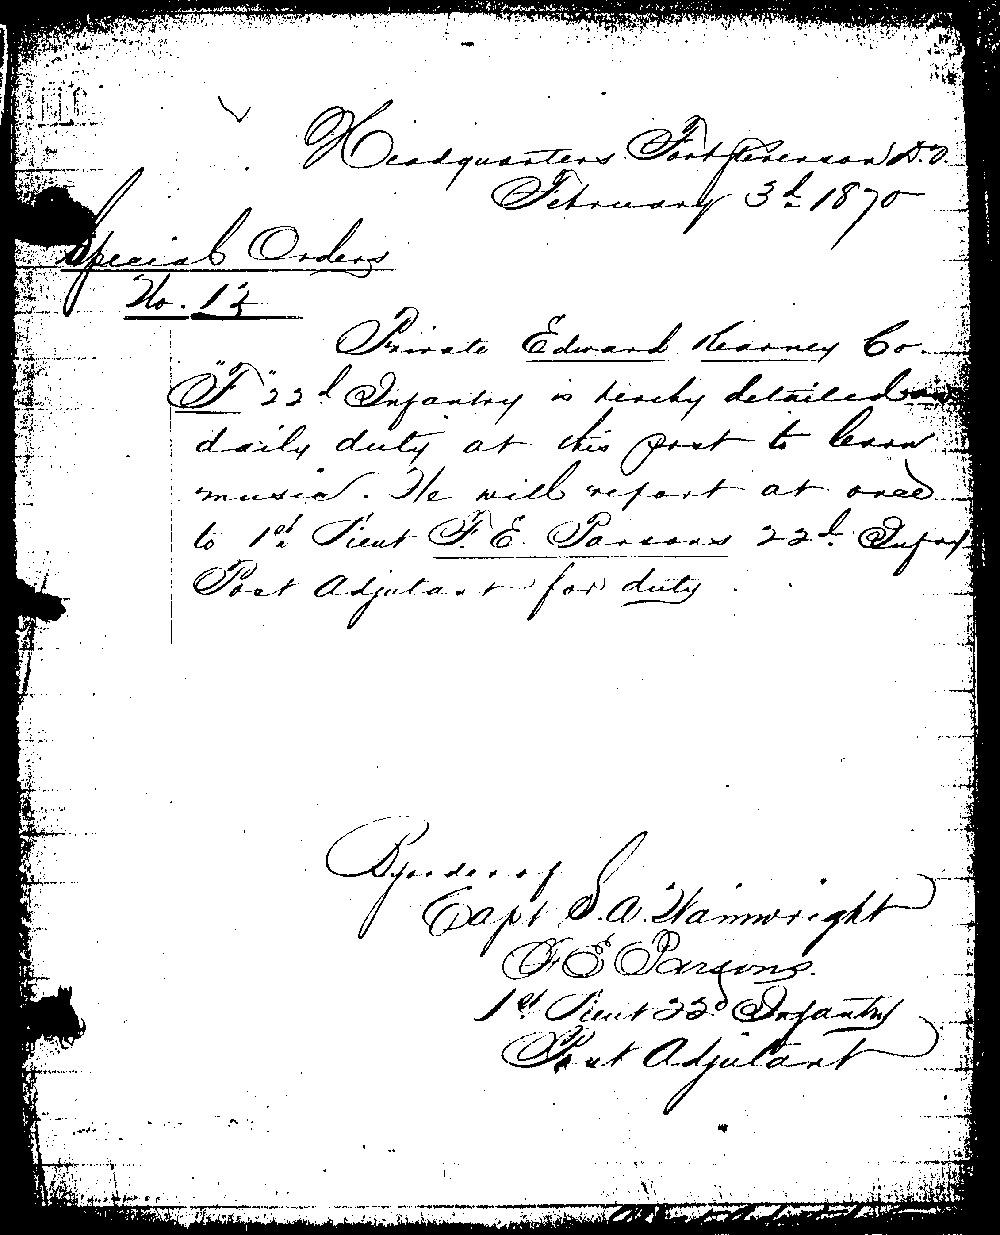 Headquarters Fort Stevenson D.T.
February 3d 1870
Special Orders
No. 12
Private Edward Kearney Co.
"F" 22d Infantry is hereby detailed on
daily duty at this post to learn
music. He will report at once
to 1st Lieut F. E. Parsons 22d Infry
Post Adjutant for duty
By order of
Capt S. A. Wainwright
F E Parsons
1st Lieut 22d Infantry
Post Adjutant